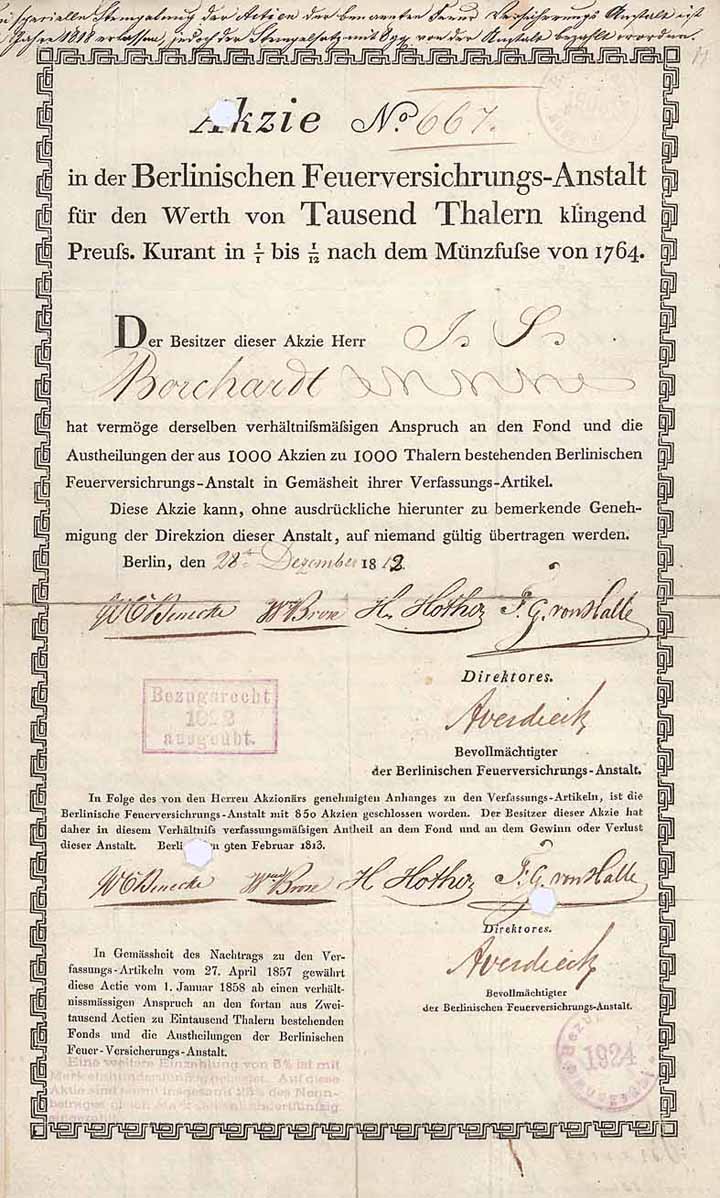 specielle Stempelung der Actien der benannten Feuer Versicherungs Anstalt ist
Jahre 1818 erlassen, jedoch der Stempelsatz mit 8 ggr von der Anstalt bezahlt worden.
Akzie No 667.
in der Berlinischen Feuerversichrungs-Anstalt
für den Werth von Tausend Thalern klingend
Preuſs. Kurant in 1/1 bis 1/12 nach dem Münzfuſse von 1764.
Der Besitzer dieser Akzie Herr J. S.
Borchardt
hat vermöge derselben verhältniſsmäſsigen Anspruch an den Fond und die
Austheilungen der aus 1000 Akzien zu 1000 Thalern bestehenden Berlinischen
Feuerversichrungs-Anstalt in Gemäsheit ihrer Verfassungs-Artikel.
Diese Akzie kann, ohne ausdrückliche hierunter zu bemerkende Geneh-
migung der Direkzion dieser Anstalt, auf niemand gültig übertragen werden.
Berlin, den 28t Dezember 1812.
WC Benecke Wm Brose H. Hotho F. G. von Halle
Direktores.
Bezugsrecht
1922
ausgeübt.
Averdieck
Bevollmächtigter
der Berlinischen Feuerversichrungs-Anstalt.
In Folge des von den Herren Akzionärs genehmigten Anhanges zu den Verfassungs-Artikeln, ist die
Berlinische Feuerversichrungs-Anstalt mit 850 Akzien geschlossen worden. Der Besitzer dieser Akzie hat
daher in diesem Verhältniſs verfassungsmäſsigen Antheil an dem Fond und an dem Gewinn oder Verlust
dieser Anstalt. Berli m 9ten Februar 1813.
WC Benecke Wm Brose H Hotho F. G. von Halle
Direktores.
Averdieck
Bevollmächtigter
der Berlinischen Feuerversichrungs-Anstalt.
In Gemässheit des Nachtrags zu den Ver-
fassungs-Artikeln vom 27. April 1857 gewährt
diese Actie vom 1. Januar 1858 ab einen verhält-
nissmässigen Anspruch an den fortan aus Zwei-
tausend Actien zu Eintausend Thalern bestehenden
Fonds und die Austheilungen der Berlinischen
Feuer-Versicherungs-Anstalt.
Eine weitere Einzahlung von 5% ist mit
geleistet. Auf diese
Aktie sind somit insgesamt 25% des Nenn-
betrages
eingezahlt.
1924